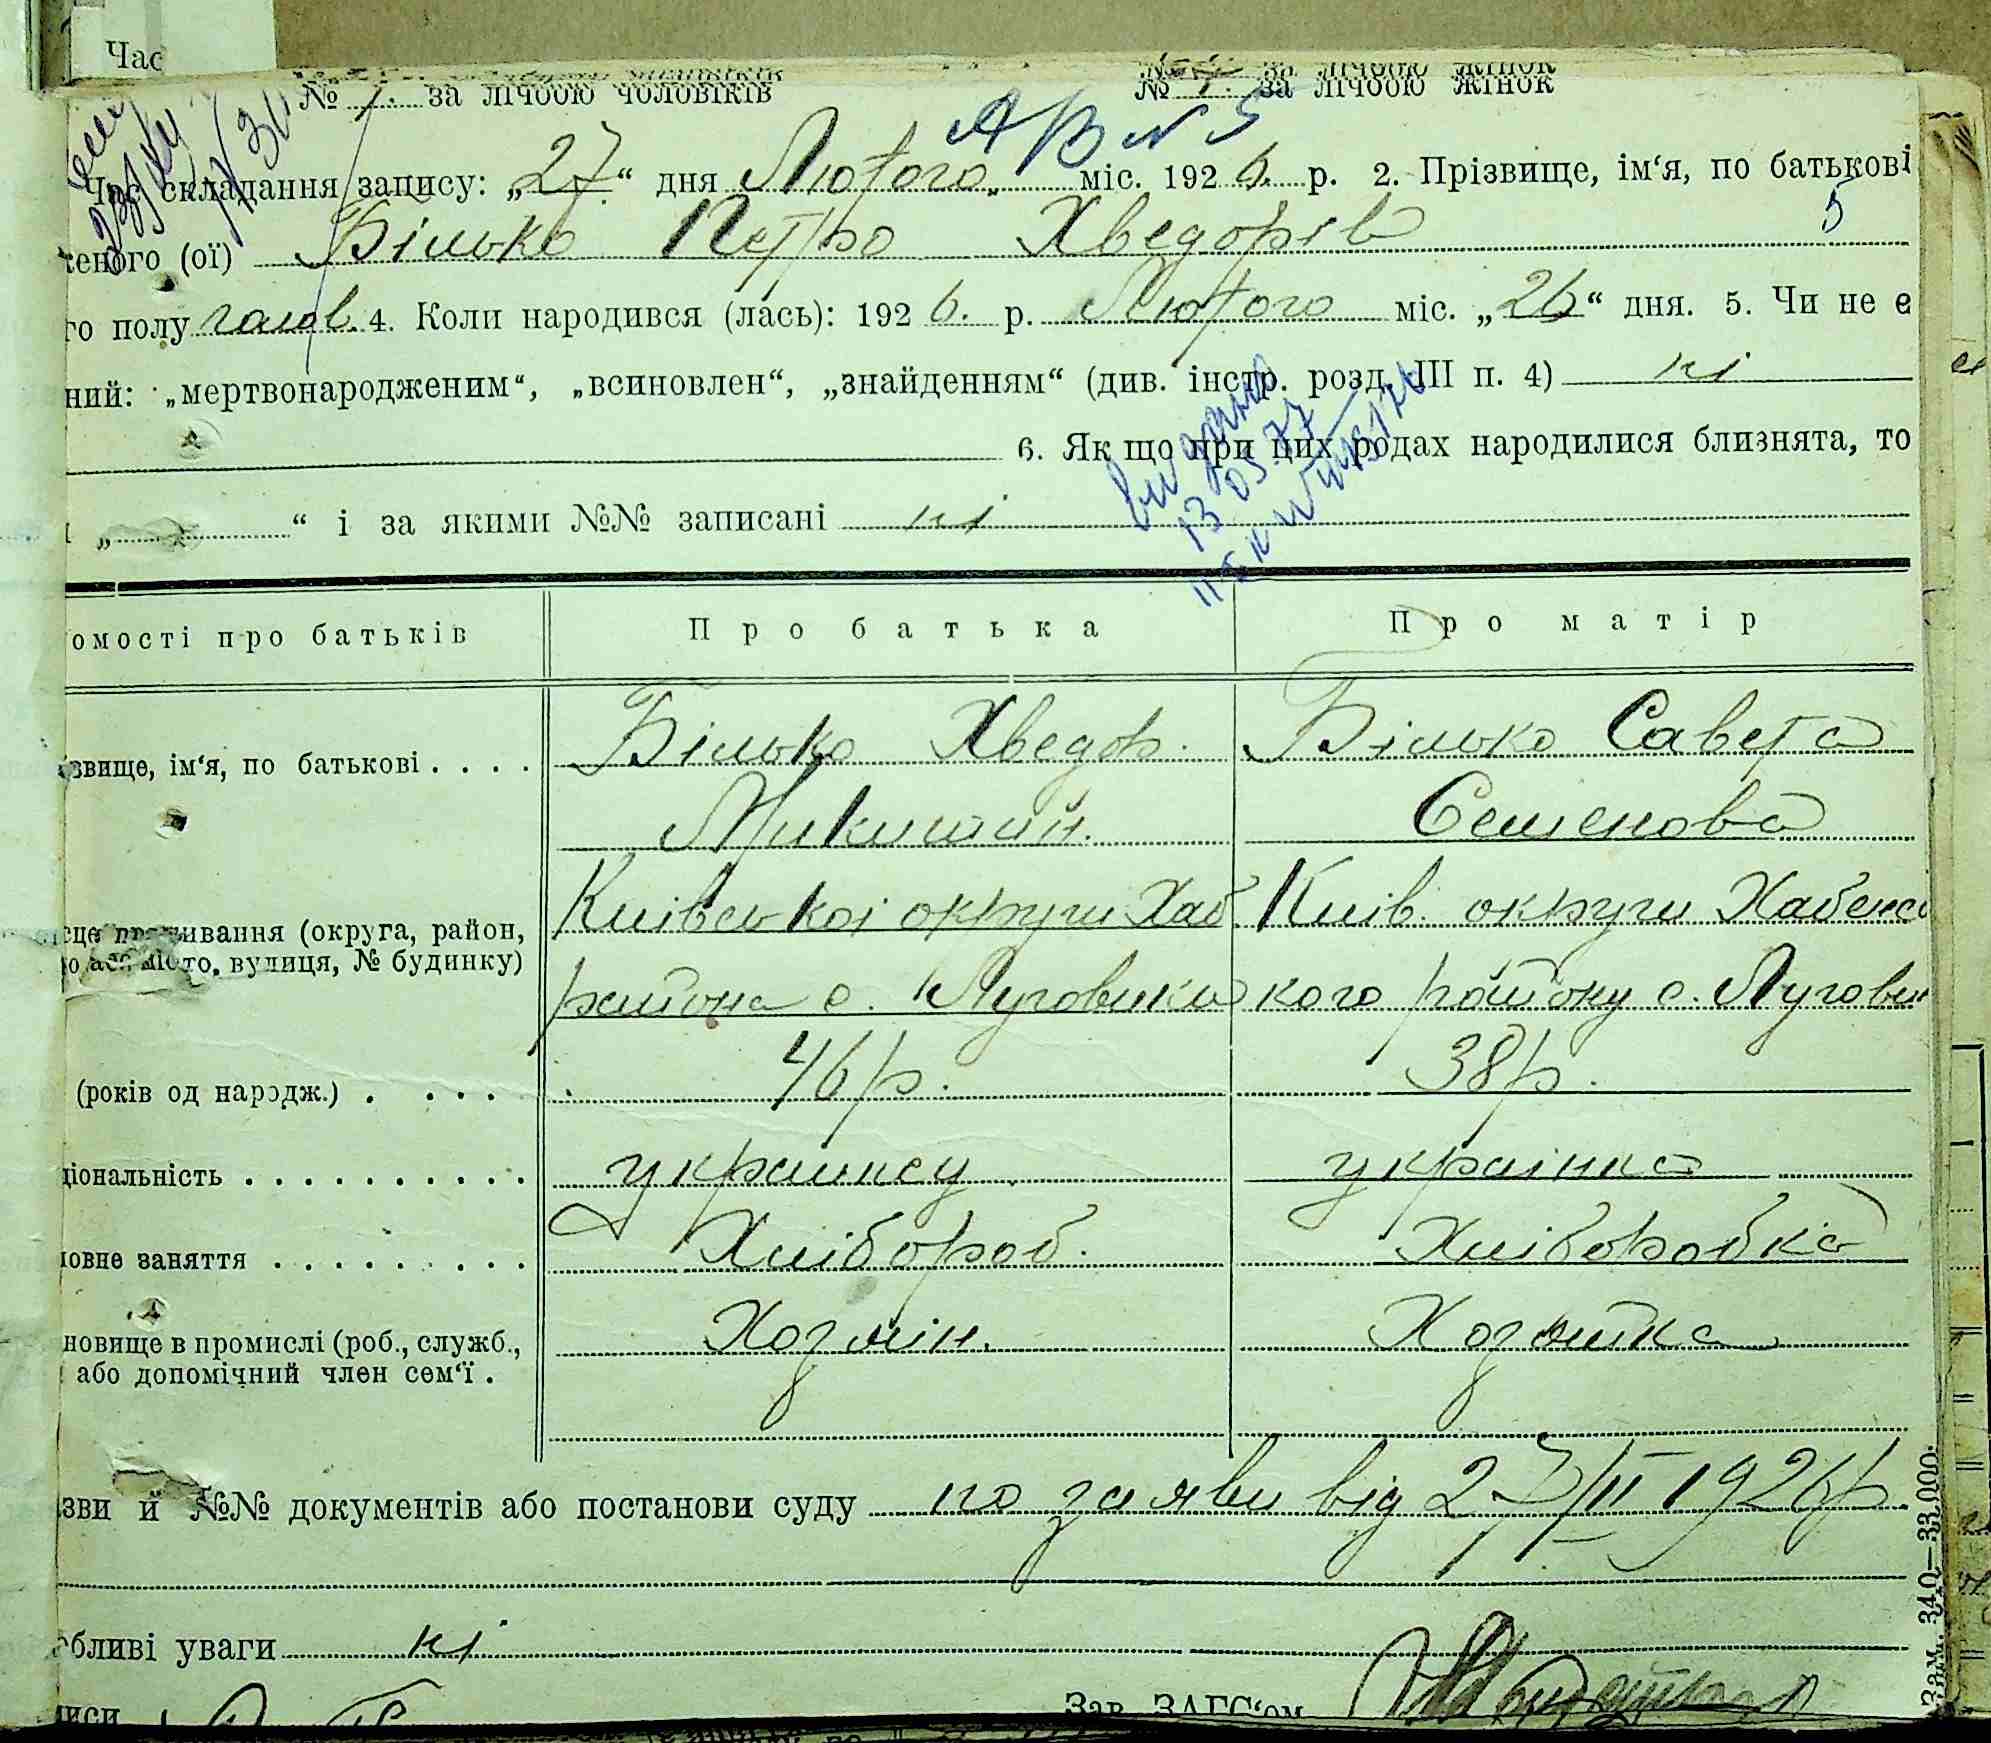 Час
№ 1. за лічбою чоловіків № за лічбою жінок
АВ № 5
Час складання запису: „27“ дня Лютого міс. 1926. р. 2. Прізвище, ім‘я, по батькові
5
еного (ої) Білько Петро Хведорів
го полу чолов. 4. Коли народився (лась): 1926. р. Лютого міс. „26“ дня. 5. Чи не є
ний: „мертвонародженим“, „всиновлен“, „знайденням“ (див. інстр. розд. III п. 4) ні
6. Як що при цих родах народилися близнята, то
„ “ і за якими №№ записані ні
13 05 77
омості про батьків Про батька Про матір
звище, ім‘я, по батькові Білько Хведор. Білько Савета
Семенова
Київської округи Хаб. Київ. округи Хабенс
сце проживання (округа, район,
місто, вулиця, № будинку)
района с. Луговики кого району с. Лугови
(років од народж.) 46 р. 38 р.
ціональність українец українка
овне заняття Хлібороб. Хліборобка
новище в промислі (роб., служб., Хозяїн. Хозяйка
або допомічний член сем‘ї.
зви й №№ документів або постанови суду по заяви від 27/II 1926 р.
обливі уваги ні
Зав. ЗАГС‘ом
Зам. 340—33.000.